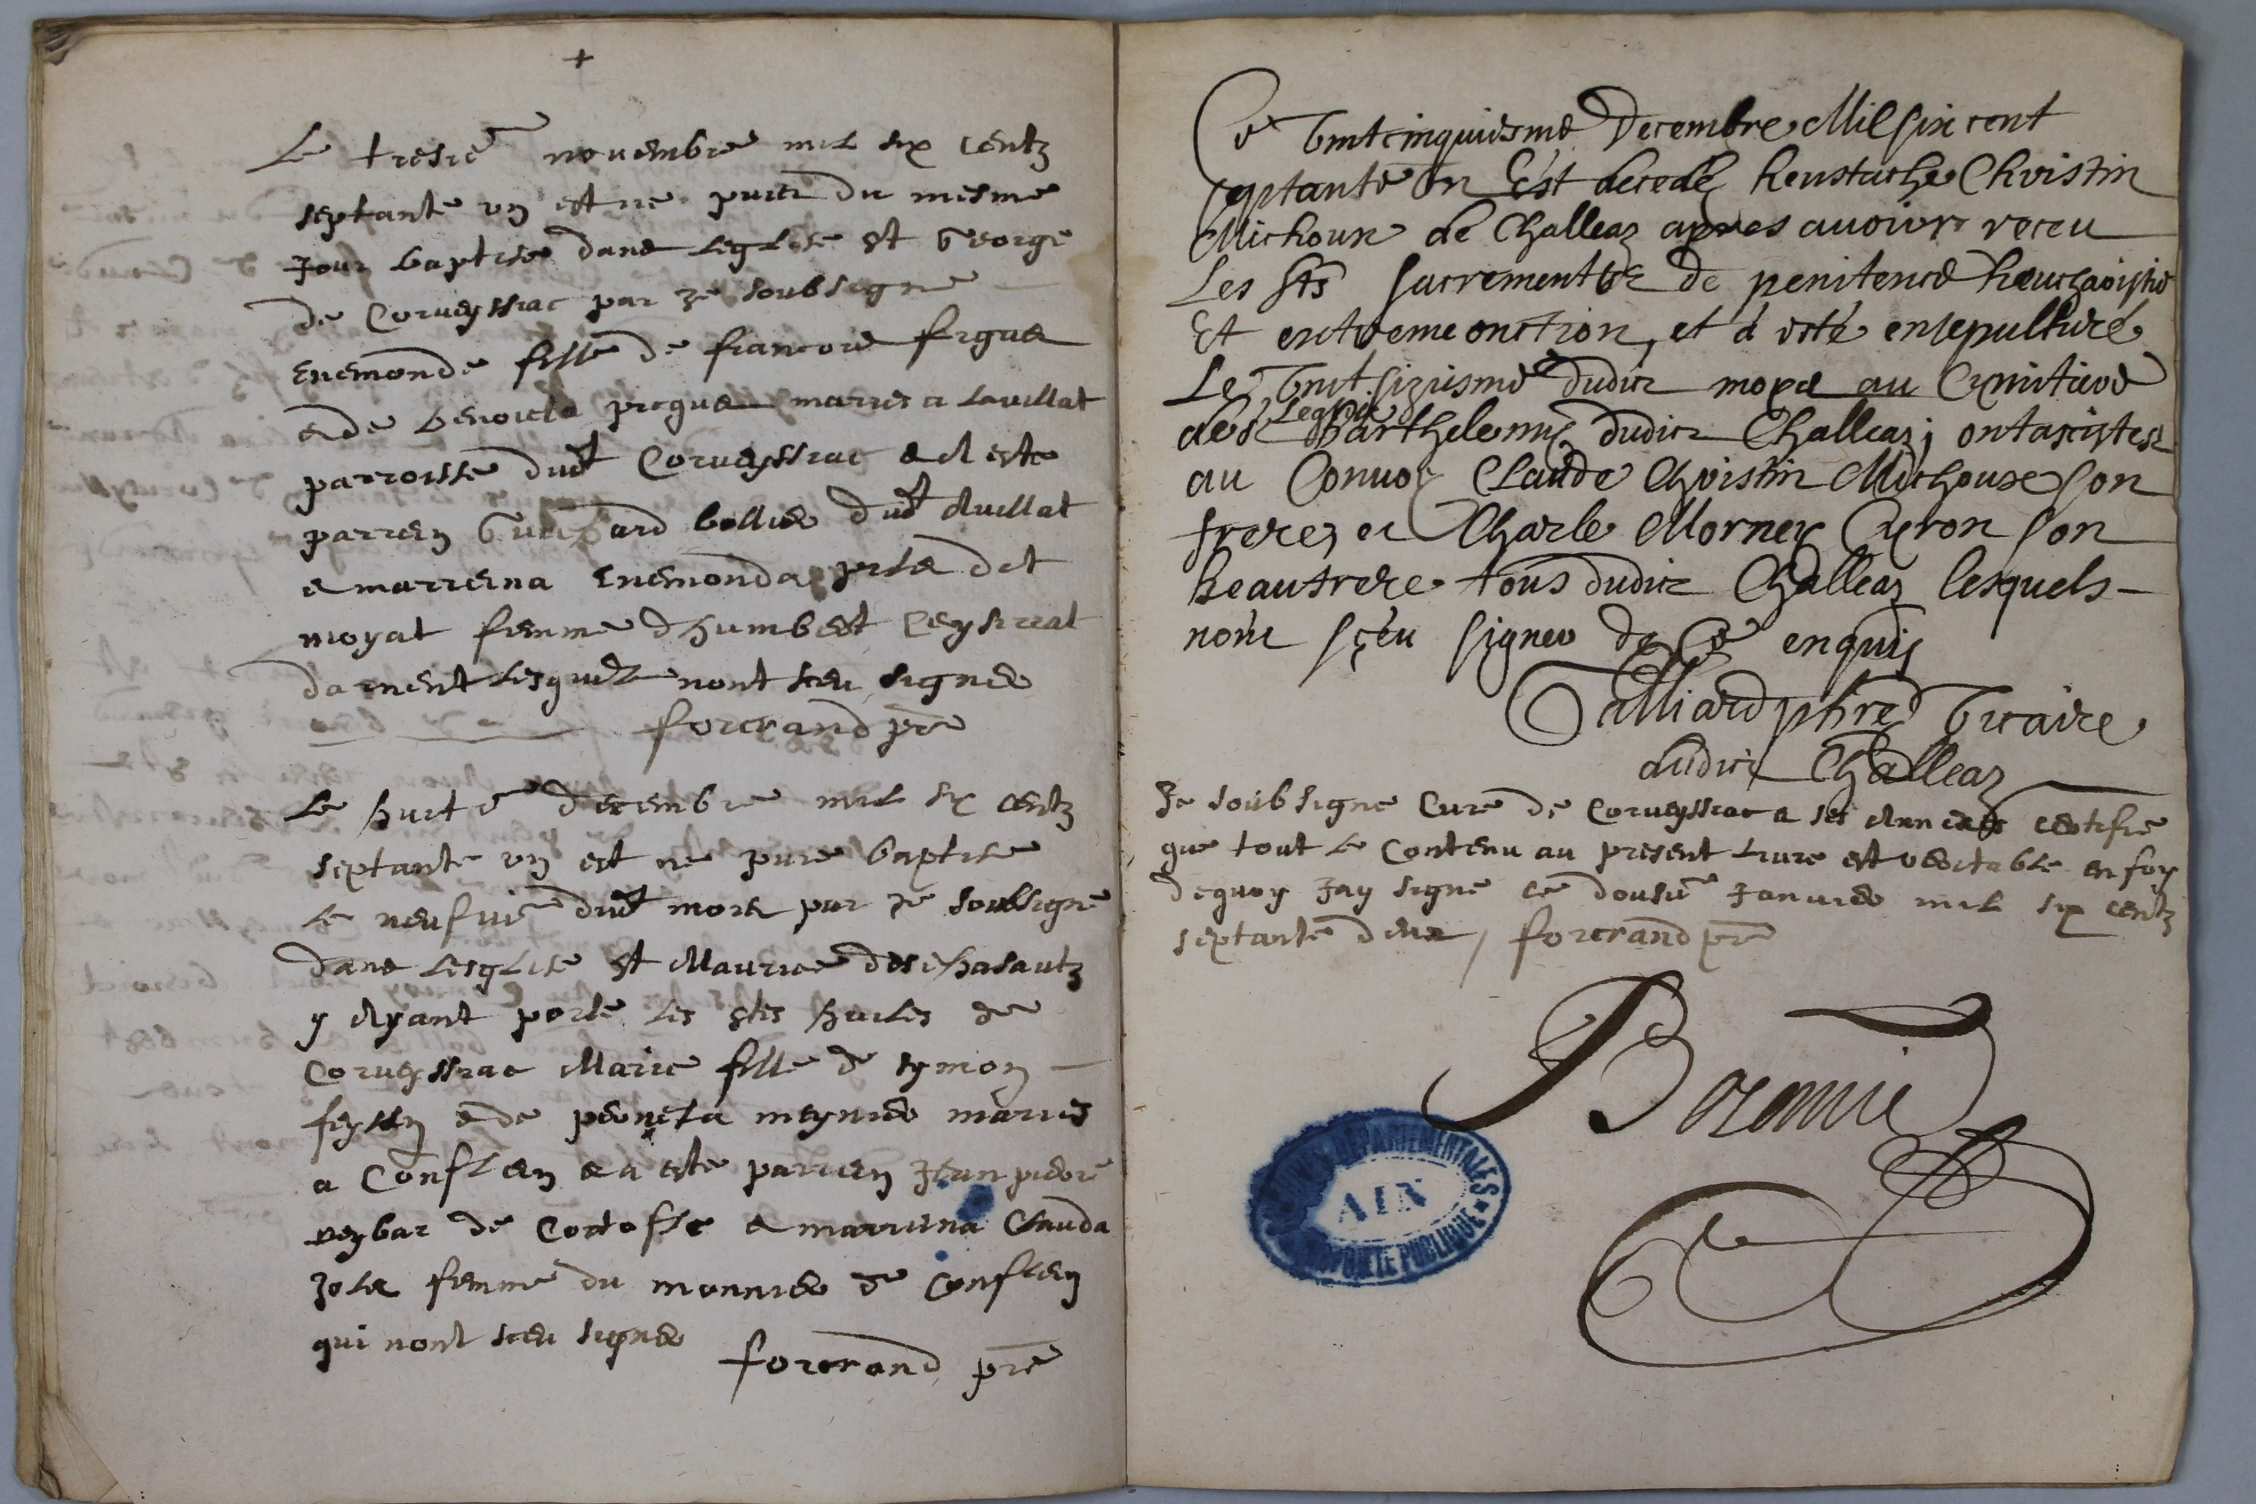 +
Le tresie novembre mil six centz
septante un est ne puier du mesme
Jour baptise dans leglise st George
de Corveyssiac par Je soubsigne
Enemonde fille de francois
e de benoicte marries a lavillat
parroisse dud Corveyssiac e a este
parrein bollie dud Avillat
e marreina Enemonda det
moyat femme dhumbert
darnent lesquels nont sceu signer
forcrand pre
Le huitie decembre mil six centz
septante un est ne puie baptise
le neufvie dud mois par Je soubsigne
dans lesglise st Maurice deschasautz
y Ayant porte les stes huiles de
Corveyssiac Marie fille de symon
e de peoneta meynier maries
a Conflen e a este parrein Jean pierre
reybar de e marreina Clauda
femme du monnier de Conflen
qui nont sceu signer
forcrand pre
Ce vintcinquiesme Decembre Mil six cent
septante Un Est decedé heustache Christin
Michoux de Challeaz apres avoir receu
Les Sts sacrements de penitence heucharistie
Et extreme onction, et à esté ensepulturé
Le vint sixiesme dudict moys au Cymitiere
de Leglise
de St Barthelemy dudict Challeaz; ont assistes
au Convoy Claude Christin Michoux son
frere, et Charle Morney Cyron son
beaufrere tous dudict Challeaz lesquels
nont sçeu signer de Ce enquis
Talliard pbre Vicaire
dudict Challeaz
Je soubsigne Cure de Corveyssiac e ses Annexes certifie
que tout le Contenu au present livre est veritable en foy
dequoy Jay signe ce dousie Janvier mil six centz
septante deux / forcrand pre
ARCHIVES DÉPARTEMENTALES
AIN
PROPRIÉTÉ PUBLIQUE